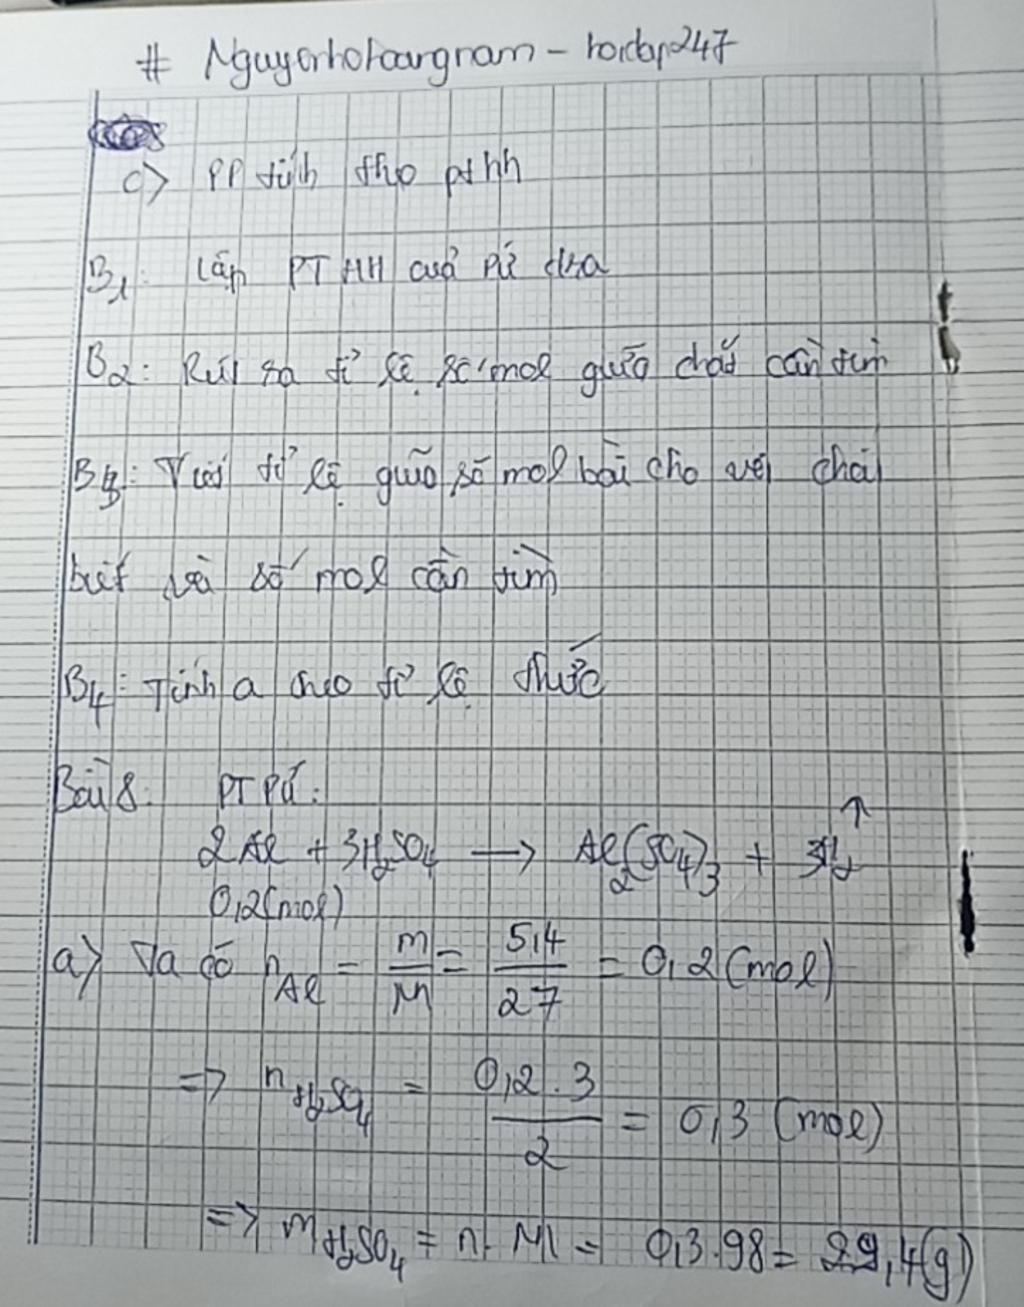 # Nguyenhohoangnam - hoidap247
c) PP tính theo pthh
B1: Lập PTHH của pứ
B2: Rút ra tỉ lệ số mol giữa chất cần tìm
B3: Viết tỉ lệ giữa số mol bài cho với chất
biết và số mol cần tìm
B4: Tính a theo tỉ lệ thức
Bài 8: PT pứ:
2Al + 3H₂SO₄ → Al₂(SO₄)₃ + 3H₂ ↑
0,2(mol)
a) Ta có n Al = m/M = 5,4/27 = 0,2 (mol)
=> n H₂SO₄ = 0,2 . 3/2 = 0,3 (mol)
=> m H₂SO₄ = n . M = 0,3 . 98 = 29,4(g)